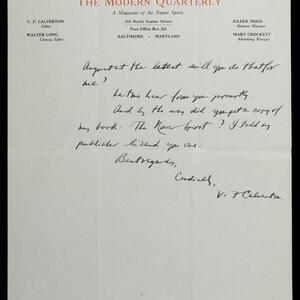 THE MODERN QUARTERLY
A Magazine of the Newer Spirit
V. F. CALVERTON
Editor
WALTER LONG
Literary Editor
318 North Exeter Street
Post Office Box 252
BALTIMORE - MARYLAND
EILEEN HOOD
Business Manager
MARY CROCKETT
Advertising Manager
August at the latest will you do that for
me?
Let me hear from you promptly
And by the way did you get a copy of
my book: The Newer Spirit? I told my
publisher to send you one.
Best regards,
Cordially,
V. F. Calverton